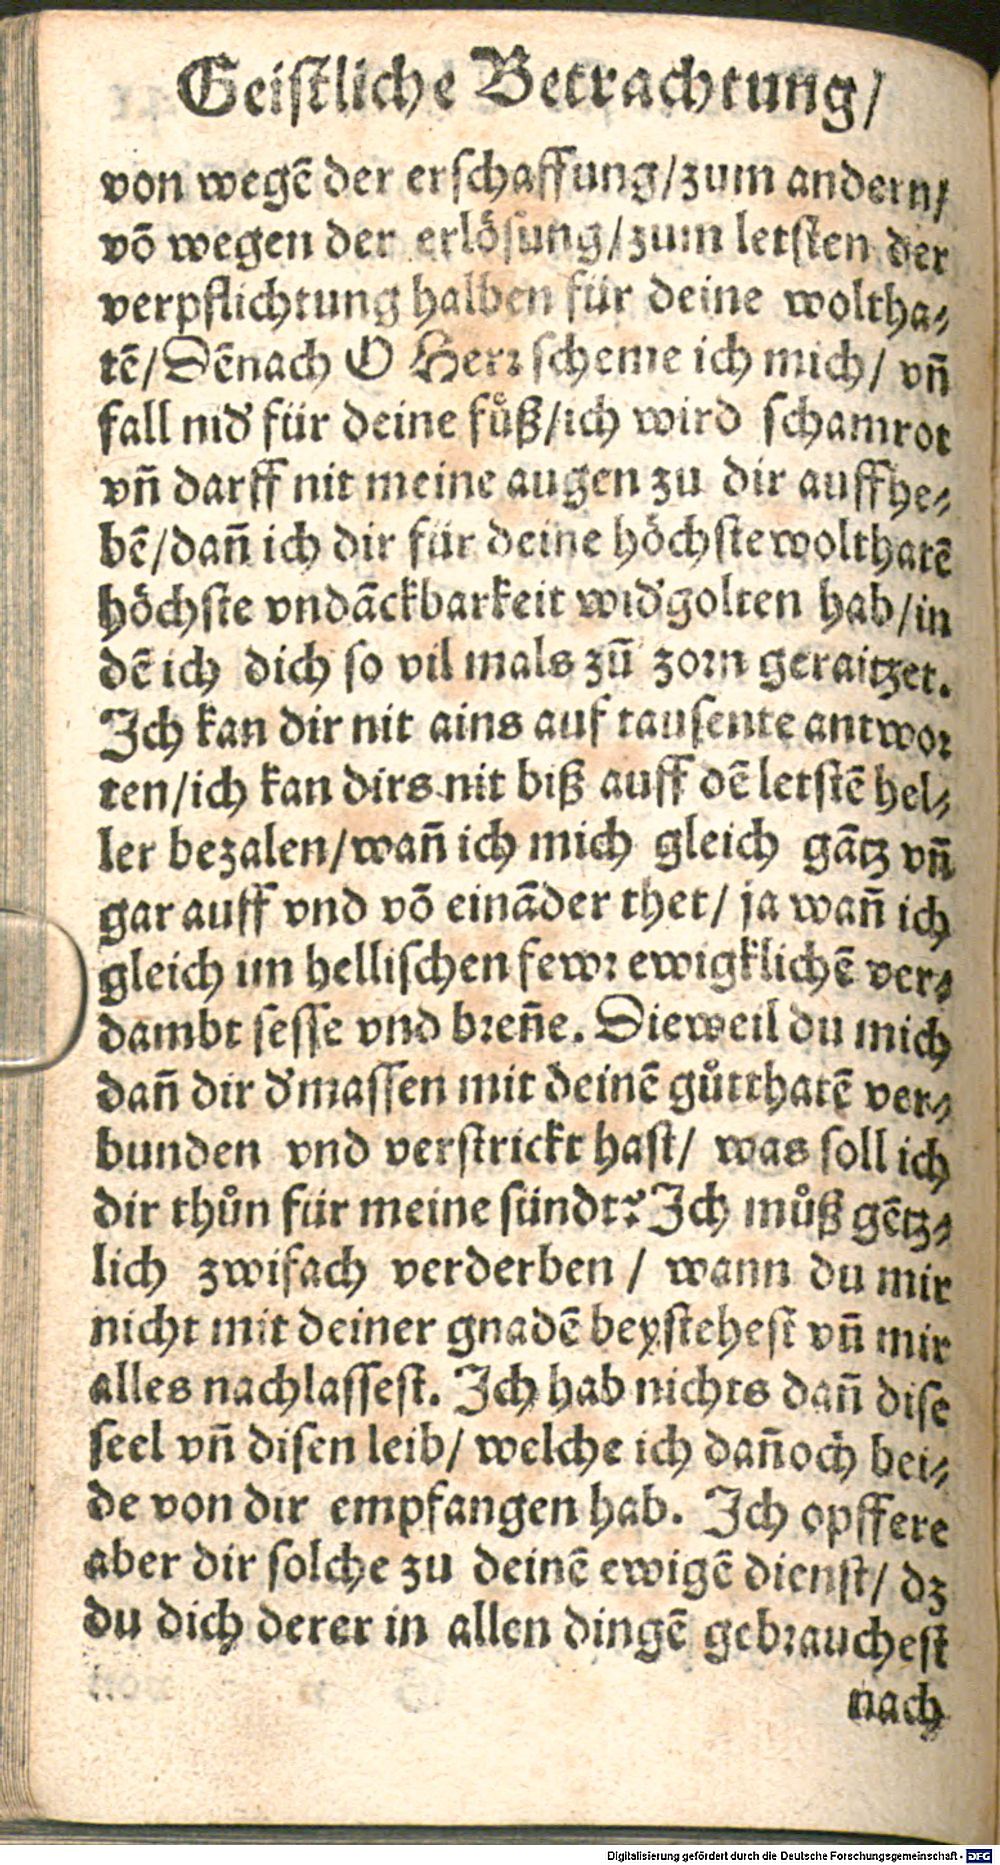 Geistliche Betrachtung/
von wegē der erschaffung/zum andern/
vō wegen der erlösung/zum letsten der
verpflichtung halben für deine woltha⸗
tē/Dēnach O Herr scheme ich mich/ vñ
fall nid' für deine fůß/ich wird schamrot
vñ darff nit meine augen zu dir auffhe⸗
bē/dañ ich dir für deine höchste wolthatē
höchste vndāckbarkeit wid'golten hab/in
dē ich dich so vil mals zū zorn geraitzet.
Ich kan dir nit ains auf tausente antwor
ten/ich kan dirs nit biß auff dē letstē hel⸗
ler bezalen/wañ ich mich gleich gātz vñ
gar auff vnd vō eināder thet/ ja wañ ich
gleich im hellischen fewr ewigklichē ver⸗
dambt sesse vnd breñe. Dieweil du mich
dañ dir d'massen mit deinē gůtthatē ver⸗
bunden vnd verstrickt hast/ was soll ich
dir thůn für meine sündt? Ich můß gētz⸗
lich zwifach verderben / wann du mir
nicht mit deiner gnadē beystehest vñ mir
alles nachlassest. Ich hab nichts dañ dise
seel vñ disen leib/ welche ich dañoch bei⸗
de von dir empfangen hab. Ich opffere
aber dir solche zu deinē ewigē dienst/ dz
du dich derer in allen dingē gebrauchest
nach
Digitalisierung gefördert durch die Deutsche Forschungsgemeinschaft - DFG